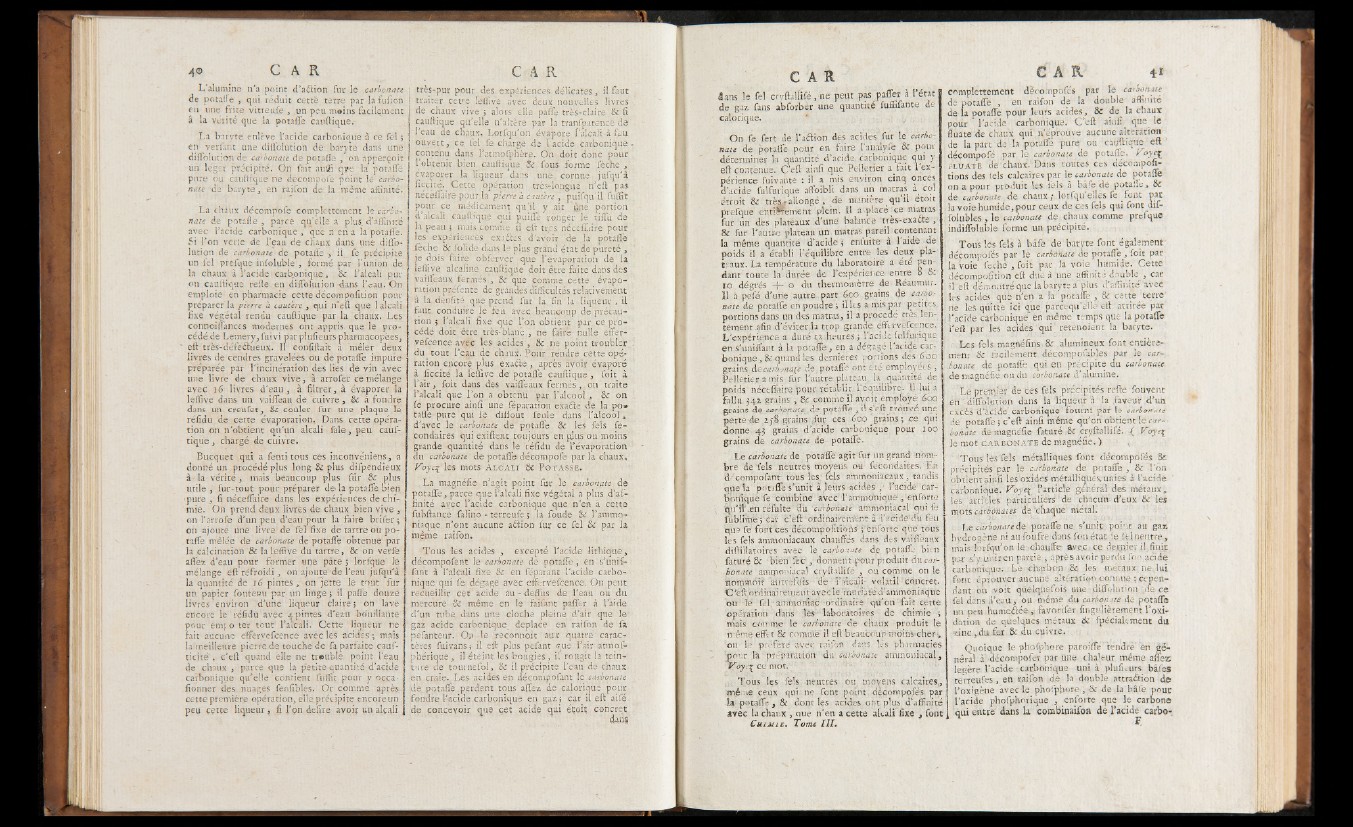 40 C A R
C A R
L'alumine n'a point d'action sur le carbonate
de potasse, qui reduit cette terre par la fusion
en une frite vitreuse, un peu moins facilement
à la vérité que la potasse caustique.
La baryte enlève l'acide carbonique à ce sel;
en versant une dissolution de baryte dans une
dissolution de carbonate de potasse, on apperçoit
un leger précipité. On fait ainsi que la potasse
pure ou caustique ne décompose point le carbo-
nate de baryte, en raison de la même affinité.
La chaux décompose complettement le carbo-
nate de potasse, parce qu'elle a plus d'affinité
avec l'acide carbonique, que n'en a la potasse.
Si l'on verse de l'eau de chaux dans une disso-
lution de carbonate de potasse, il se précipite
un sel presque insoluble, formé par l'union de
la chaux à l'acide carbonique, & l'alcali pur
ou caustique reste en dissolution dans l'eau. On
emploie en pharmacie cette décomposition pour
préparer la pierre à cautère, qui n'est que l'alcali
fixe végétal rendu caustique par la chaux. Les
connoissances modernes ont appris que le pro-
cédé de Lemery, suivi par plusieurs pharmacopées,
est très-défectueux. Il consistait à mêler deux
livres de cendres gravelées ou de potasse impure
préparée par l'incinération des lies de vin avec
une livre de chaux vive, à arroser ce mélange
avec 16 livres d'eau, à filtrer, à évaporer la
lessive dans un vaisseau de cuivre, & à fondre
dans un creuset, & couler sur une plaque le
résidu de cette évaporation. Dans cette opéra-
tion on n'obtient qu'un alcali sale, peu caus-
tique, chargé de cuivre.
Bucquet qui a senti tous ces inconvéniens, a
donné un procédé plus long & plus dispendieux
à la vérité, mais beaucoup plus sûr & plus
utile, sur-tout pour préparer de la potasse bien
pure, si nécessaire dans les expériences de chi-
mie. On prend deux livres de chaux bien vive,
on l'arrose d'un peu d'eau pour la faire briser;
on ajoute une livre de sel fixe de tartre ou po-
tasse mêlée de carbonate de potasse obtenue par
la calcination & la lessive du tartre, & on verse
assez d'eau pour former une pâte; lorsque le
mélange est refroidi, on ajoute de l'eau jusqu'à
la quantité de 16 pintes, on jette le tout sur
un papier soutenu par un linge; il passe douze
livres environ d'une liqueur claire; on lave
encore le résidu avec 4 pintes d'eau bouillante
pour emporter tout l'alcali. Cette liqueur ne
fait aucune effervescence avec les acides; mais
la meilleure pierre de touche de sa parfaite caus-
ticité, c'est quand elle ne trouble point l'eau
de chaux, parce que la petite quantité d'acide
carbonique qu'elle contient suffit pour y occa-
sionner des nuages sensibles. Or comme après
cette première opération, elle précipite encore un
peu cette liqueur, si l'on desire avoir un alcali
très-pur pour des expériences délicates, il faut
traiter cette lessive avec deux nouvelles livres
de chaux vive; alors elle passe très-claire & si
caustique qu'elle n'altère pas la transparence de
l'eau de chaux. Lorsqu'on évapore l'alcali à feu
ouvert, ce sel se charge de l'acide carbonique
contenu dans l'atmosphère. On doit donc pour
l'obtenir bien caustique & sous forme sèche,
évaporer la liqueur dans une cornue jusqu'à
siccité. Cette opération très-longue n'est pas
nécessaire pour la pierre à cautère, puisqu'il suffit
pour ce médicament qu'il y ait une portion
d'alcali caustique qui puisse ronger le tissu de
la peau; mais comme il est très nécessaire pour
les expériences exactes d'avoir de la potasse
sèche & solide dans le plus grand état de pureté,
je dois faire observer que l'évaporation de la
lessive alcaline caustique doit être faite dans des
vaisseaux fermés, & que comme cette évapo-
ration présente de grandes difficultés relativement
à la densité que prend sur la fin la liqueur, il
faut conduire le feu avec beaucoup de précau-
tion; l'alcali fixe que l'on obtient par ce pro-
cédé doit être très-blanc, ne faire nulle effer-
vescence avec les acides, & ne point troubler
du tout l'eau de chaux. Pour rendre cette opé-
ration encore plus exacte, après avoir évaporé
à siccité la lessive de potasse caustique, soit à
l'air, soit dans des vaisseaux fermés, on traite
l'alcali que l'on a obtenu par l'alcool, & on
se procure ainsi une séparation exacte de la po-
tasse pure qui se dissout seule dans l'alcool,
d'avec le carbonate de potasse & les sels se-
condaires qui existent toujours en plus ou moins
grande quantité dans le résidu de l'évaporation
du carbonate de potasse décomposé par la chaux.
Voyez les mots ALCALI & POTASSE.
La magnésie n'agit point sur le carbonate de
potasse, parce que l'alcali fixe végétal a plus d'af-
finité avec l'acide carbonique que n'en a cette
substance salino-terreuse; la soude & l'ammo-
niaque n'ont aucune action sur ce sel & par la
même raison.
Tous les acides, excepté l'acide lithique,
décomposent le carbonate de potasse, en s'unis-
sant à l'alcali fixe & en séparant l'acide carbo-
nique qui se dégage avec effervescence. On peut
recueillir cet acide au-dessus de l'eau ou du
mercure & même en le faisant passer à l'aide
d'un tube dans une cloche pleine d'air que le
gaz acide carbonique déplace en raison de sa
pesanteur. On le reconnoît aux quatre carac-
tères suivans; il est plus pesant que l'air atmos-
phérique, il éteint les bougies, il rougit la tein-
ture de tournesol, & il précipite l'eau de chaux
en craie. Les acides en décomposant le carbonate
de potasse perdent tous assez de calorique pour
fondre l'acide carbonique en gaz; car il est aisé
de concevoir que cet acide qui étoit concret
dans
C A R
C A R 41
dans le sel crystallisé, ne peut pas passer à l'état
de gaz sans absorber une quantité suffisante de
calorique.
On se sert de l'action des acides sur le carbo-
nate de potasse pour en faire l'analyse & pour
déterminer la quantité d'acide carbonique qui y
est contenue. C'est ainsi que Pelletier a fait l'ex-
périence suivante: il a mis environ cinq onces
d'acide sulfurique affoibli dans un matras à col
étroit & très-allongé, de manière qu'il étoit
presque entièrement plein. Il a placé ce matras
sur un des plateaux d'une balance très-exacte,
& sur l'autre plateau un matras pareil contenant
la même quantité d'acide; ensuite à l'aide de
poids il a établi l'équilibre entre les deux pla-
teaux. La température du laboratoire a été pen-
dant toute la durée de l'expérience entre 8 &
10 dégrés + 0 du thermomètre de Réaumur.
Il a pesé d'une autre part 600 grains de carbo-
nate de potasse en poudre; il les a mis par petites
portions dans un des matras, il a procédé très len-
tement afin d'éviter la trop grande effervescence.
L'expérience a duré 12 heures; l'acide sulfurique
en s'unissant à la potasse, en a dégagé l'acide car-
bonique, & quand les dernières portions des 600
grains de carbonate de potasse ont été employées,
Pelletier a mis sur l'autre plateau la quantité de
poids nécessaire pour rétablir l'équilibre. Il lui a
fallu 342 grains, & comme il avoit employé 600
grains de carbonate de potasse, il s'est trouvé une
perte de 258 grains sur ces 600 grains; ce qui
donne 43 grains d'acide carbonique pour 100
grains de carbonate de potasse.
Le carbonate de potasse agit sur un grand nom-
bre de sels neutres moyens ou secondaires. En
décomposant tous les sels ammoniacaux, tandis
que la potasse s'unit à leurs acides, l'acide car-
bonique se combine avec l'ammoniaque, ensorte
qu'il en résulte du carbonate ammoniacal qui se
sublime; car c'est ordinairement à l'aide du feu
que se font ces décompositions; ensorte que tous
les sels ammoniacaux chauffés dans des vaisseaux
distillatoires avec le carbonate de potasse bien
saturé & bien sec, donnent pour produit du car-
bonate ammoniacal crystallisé, ou comme on le
nommoit autrefois de l'alcali volatil concret.
C'est ordinairement avec le muriate d'ammoniaque
ou le sel ammoniac ordinaire qu'on fait cette
opération dans les laboratoires de chimie;
mais comme le carbonate de chaux produit le
même effet & comme il est beaucoup moins cher,
on le préfère avec raison dans les pharmacies
pour la préparation du carbonate ammoniacal,
Voyez ce mot.
Tous les sels neutres ou moyens calcaires,
même ceux qui ne sont point décomposés par
la potasse, & dont les acides ont plus d'affinité
avec la chaux, que n'en a cette alcali fixe, sont
CHIMIE. Tome III.
complettement décomposés par le carbonate
de potasse, en raison de la double affinité
de la potasse pour leurs acides, & de la chaux
pour l'acide carbonique. C'est ainsi que le
fluate de chaux qui n'éprouve aucune altération
de la part de la potasse pure ou caustique est
décomposé par le carbonate de potasse. Voyez
FLUATE de chaux. Dans toutes ces décomposi-
tions des sels calcaires par le carbonate de potasse
on a pour produit les sels à base de potasse, &
de carbonate de chaux; lorsqu'elles se font par
la voie humide, pour ceux de ces sels qui sont dis-
solubles, le carbonate de chaux comme presque
indissoluble forme un précipité.
Tous les sels à base de baryte sont également
décomposés par le carbonate de potasse, soit par
la voie sèche, soit par la voie humide. Cette
décomposition est due à une affinité double, car
il est démontré que la baryte a plus d'affinité avec
les acides que n'en a la potasse, & cette terre
ne les quitte ici que parcequ'elle est attirée par
l'acide carbonique en même temps que la potasse
l'est par les acides qui retenoient la baryte.
Les sels magnésiens & alumineux sont entière-
ment & facilement décomposables par le car-
bonate de potasse qui en précipite du carbonate
de magnésie ou du carbonate d'alumine.
Le premier de ces sels précipités reste souvent
en dissolution dans la liqueur à la faveur d'un
excès d'acide carbonique fourni par le carbonate
de potasse; c'est ainsi même qu'on obtient le car-
bonate de magnésie saturé & crystallisé. (Voyez
le mot CARBONATE de magnésie.)
Tous les sels métalliques sont décomposés &
précipités par le carbonate de potasse, & l'on
obtient ainsi les oxides métalliques unies à l'acide
carbonique. Voyez l'article général des métaux,
les articles particuliers de chacun d'eux & les
mots carbonates de chaque métal.
Le carbonate de potasse ne s'unit point au gaz
hydrogène ni au soufre dans son état de sel neutre,
mais lorsqu'on le chauffe avec ce dernier il finit
par s'y unir en partie, après avoir perdu son acide
carbonique. Le charbon & les métaux ne lui
font éprouver aucune altération connue; cepen-
dant on voit quelquefois une dissolution de ce
sel dans l'eau, ou même du carbonate de potasse
un peu humectée, favoriser singulièrement l'oxi-
dation de quelques métaux & spécialement du
zinc, du fer & du cuivre.
Quoique le phosphore paroisse tendre en gé-
néral à décomposer par une chaleur même assez
légère l'acide carbonique uni à plusieurs bases
terreuses, en raison de la double attraction de
l'oxigène avec le phosphore, & de la base pour
l'acide phosphorique, ensorte que le carbone
qui entre dans la combinaison de l'acide carbo-
F